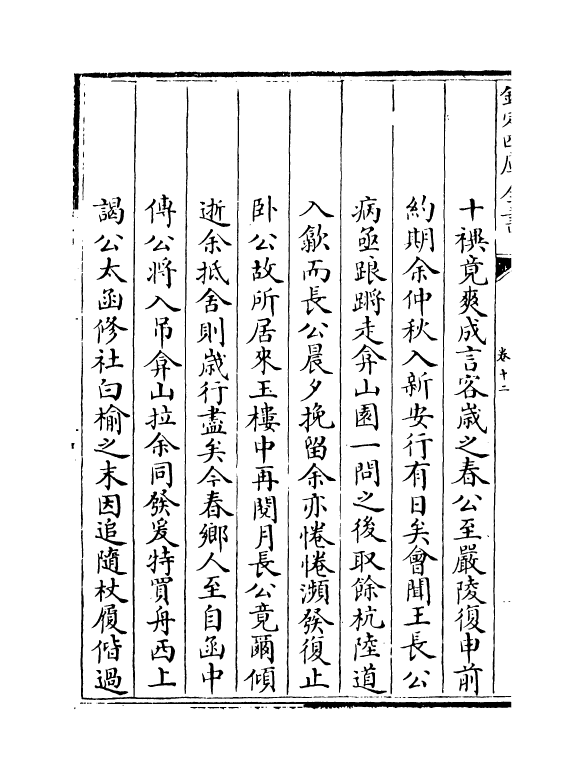 欽定四庫全書
卷十二
十禩竟爽成言客嵗之春公至嚴陵復申前
約期余仲秋入新安行有日矣會聞王長公
病亟踉蹡走弇山園一問之後取餘杭陸道
入歙而長公晨夕挽留余亦惓惓瀕發復止
卧公故所居來玉樓中再閱月長公竟爾傾
逝余抵舍則嵗行盡矣今春鄉人至自函中
傳公將入吊弇山拉余同發爰特買舟西上
謁公太函修社白榆之末因追隨杖屨偕過